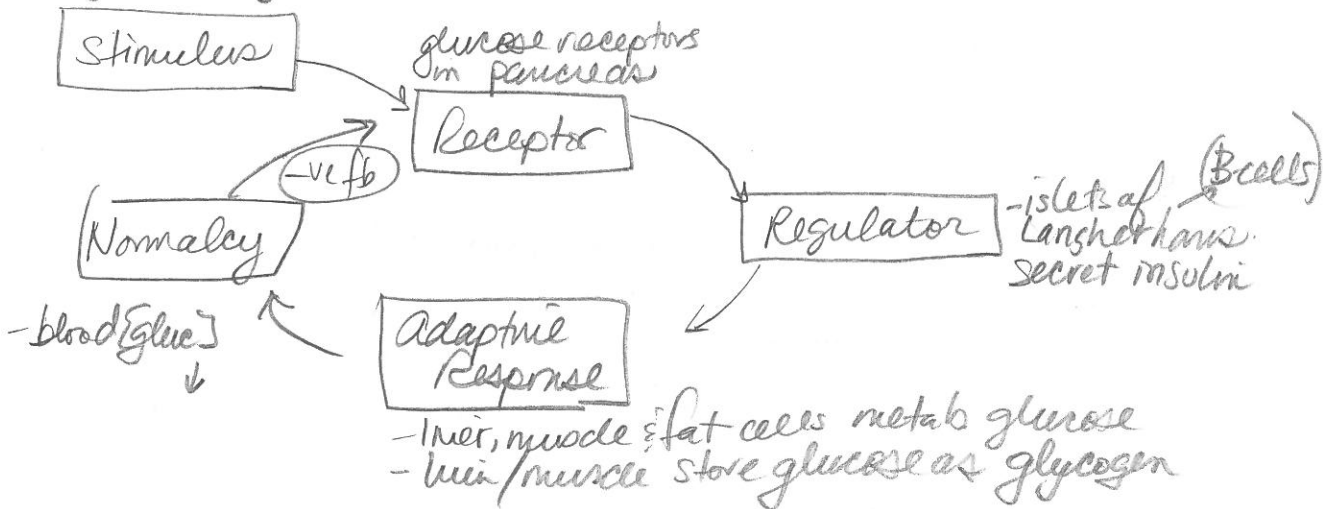 Stimulus
glucose receptors
in pancreas
Receptor
-ve fb
(B cells)
Normalcy
Regulator
-islets of
Langherhans.
secret insulin
-blood [gluc]
↓
Adaptive
Response
-liver, muscle & fat cells metab glucose
-liver/muscle store glucose as glycogen